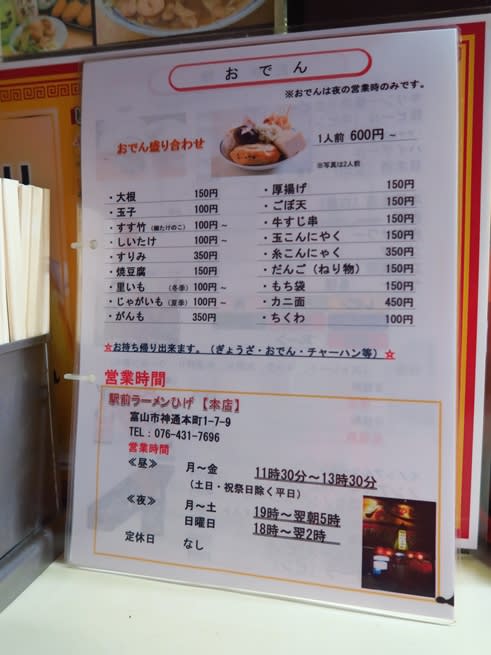 おでん
※おでんは夜の営業時のみです。
おでん盛り合わせ
1人前 600円~
※写真は2人前
・大根 150円
・玉子 100円
・すす竹（細たけのこ） 100円~
・しいたけ 100円~
・すりみ 350円
・焼豆腐 150円
・里いも（冬季） 100円~
・じゃがいも（夏季） 100円~
・がんも 350円
・厚揚げ 150円
・ごぼ天 150円
・牛すじ串 350円
・玉こんにゃく 150円
・糸こんにゃく 350円
・だんご（ねり物） 150円
・もち袋 150円
・カニ面 450円
・ちくわ 100円
☆お持ち帰り出来ます。（ぎょうざ・おでん・チャーハン等）☆
営業時間
駅前ラーメンひげ【本店】
富山市神通本町1-7-9
TEL：076-431-7696
営業時間
≪昼≫ 月～金 11時30分～13時30分
（土日・祝祭日除く平日）
≪夜≫ 月～土 19時～翌朝5時
日曜日 18時～翌2時
定休日 なし